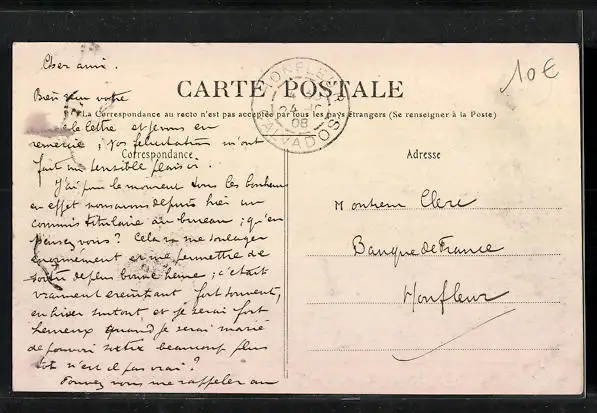 Cher ami.
CARTE POSTALE
10€
Bien reçu votre
La Correspondance au recto n'est pas acceptée par tous les pays étrangers (Se renseigner à la Poste)
HONFLEUR
24
08
CALVADOS
lettre et vous en
remercie; Vos félicitations m'ont
Correspondance
fait un sensible plaisir.
J'ai pour le moment tous les bonheurs
en effet nous avons depuis hier un
commis titulaire au bureau; qu'en
pensez vous? Cela va me soulager
énormément et me permettre de
sortir de plus bonne heure; c'était
vraiment éreintant fort souvent,
en hiver surtout et je serai fort
heureux quand je serai marié
de pouvoir sortir beaucoup plus
tôt n'est il pas vrai?
Pouvez vous me rappeler au
Adresse
Monsieur Clerc
Banque de France
Honfleur